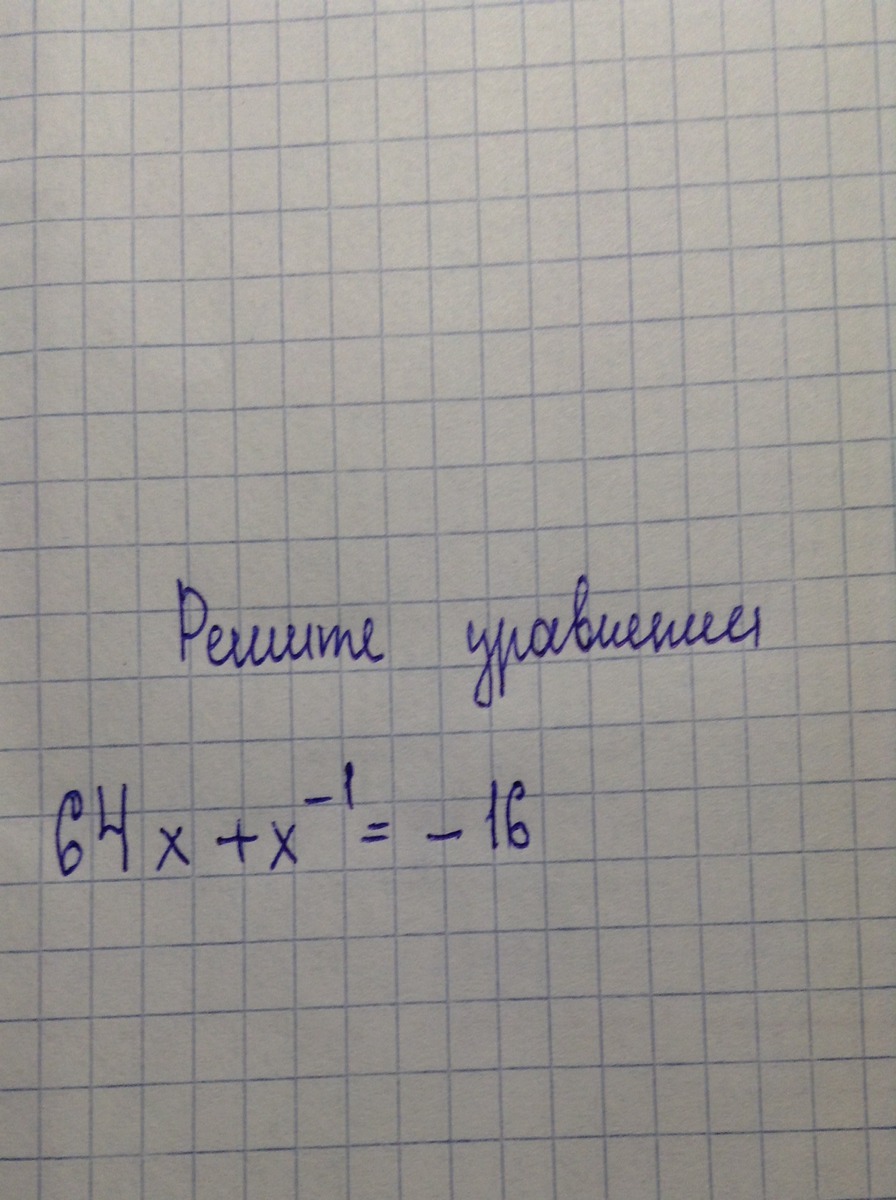 Решите уравнения
64x + x⁻¹ = - 16